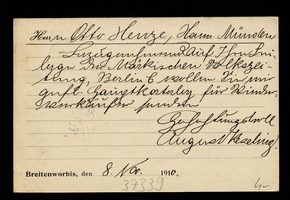 Herrn Otto Henze, Hann. Münden
Bezugnehmend auf Ihre Bei-
lage der Märkischen Volkszei-
tung, Berlin C wollen Sie mir
gefl. Hauptkatalog für Wieder-
verkäufer senden
Hochachtungsvoll
August
Breitenworbis, den 8. Nov. 1910.
37339
4-